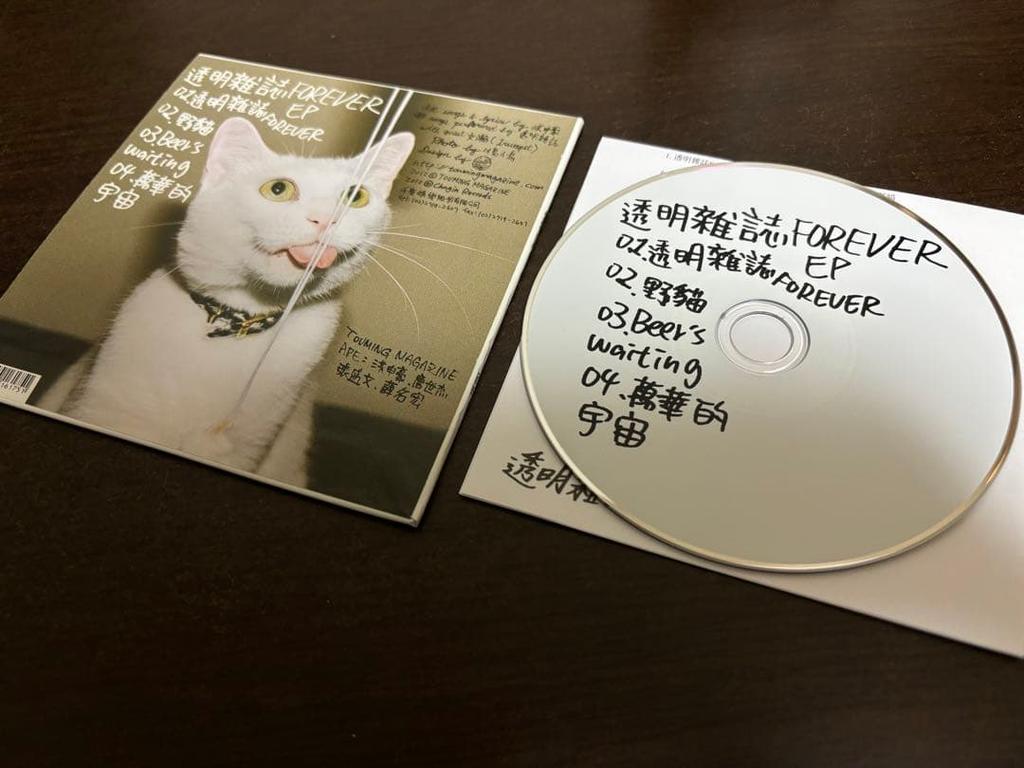 透明雜誌FOREVER
EP
01.透明雜誌FOREVER
02.野貓
03.Beer's
waiting
04.萬華的
宇宙
All songs & lyrics by
All songs performed by 透明雜誌
Photo by
Design by
http://toumingmagazine.com
2012 © TOUMING MAGAZINE
TOUMING MAGAZINE
APE:洪申豪.唐世杰
張盛文.薛名宏
透明雜誌FOREVER
EP
01.透明雜誌FOREVER
02.野貓
03.Beer's
waiting
04.萬華的
宇宙
1.透明雜誌
透明雜